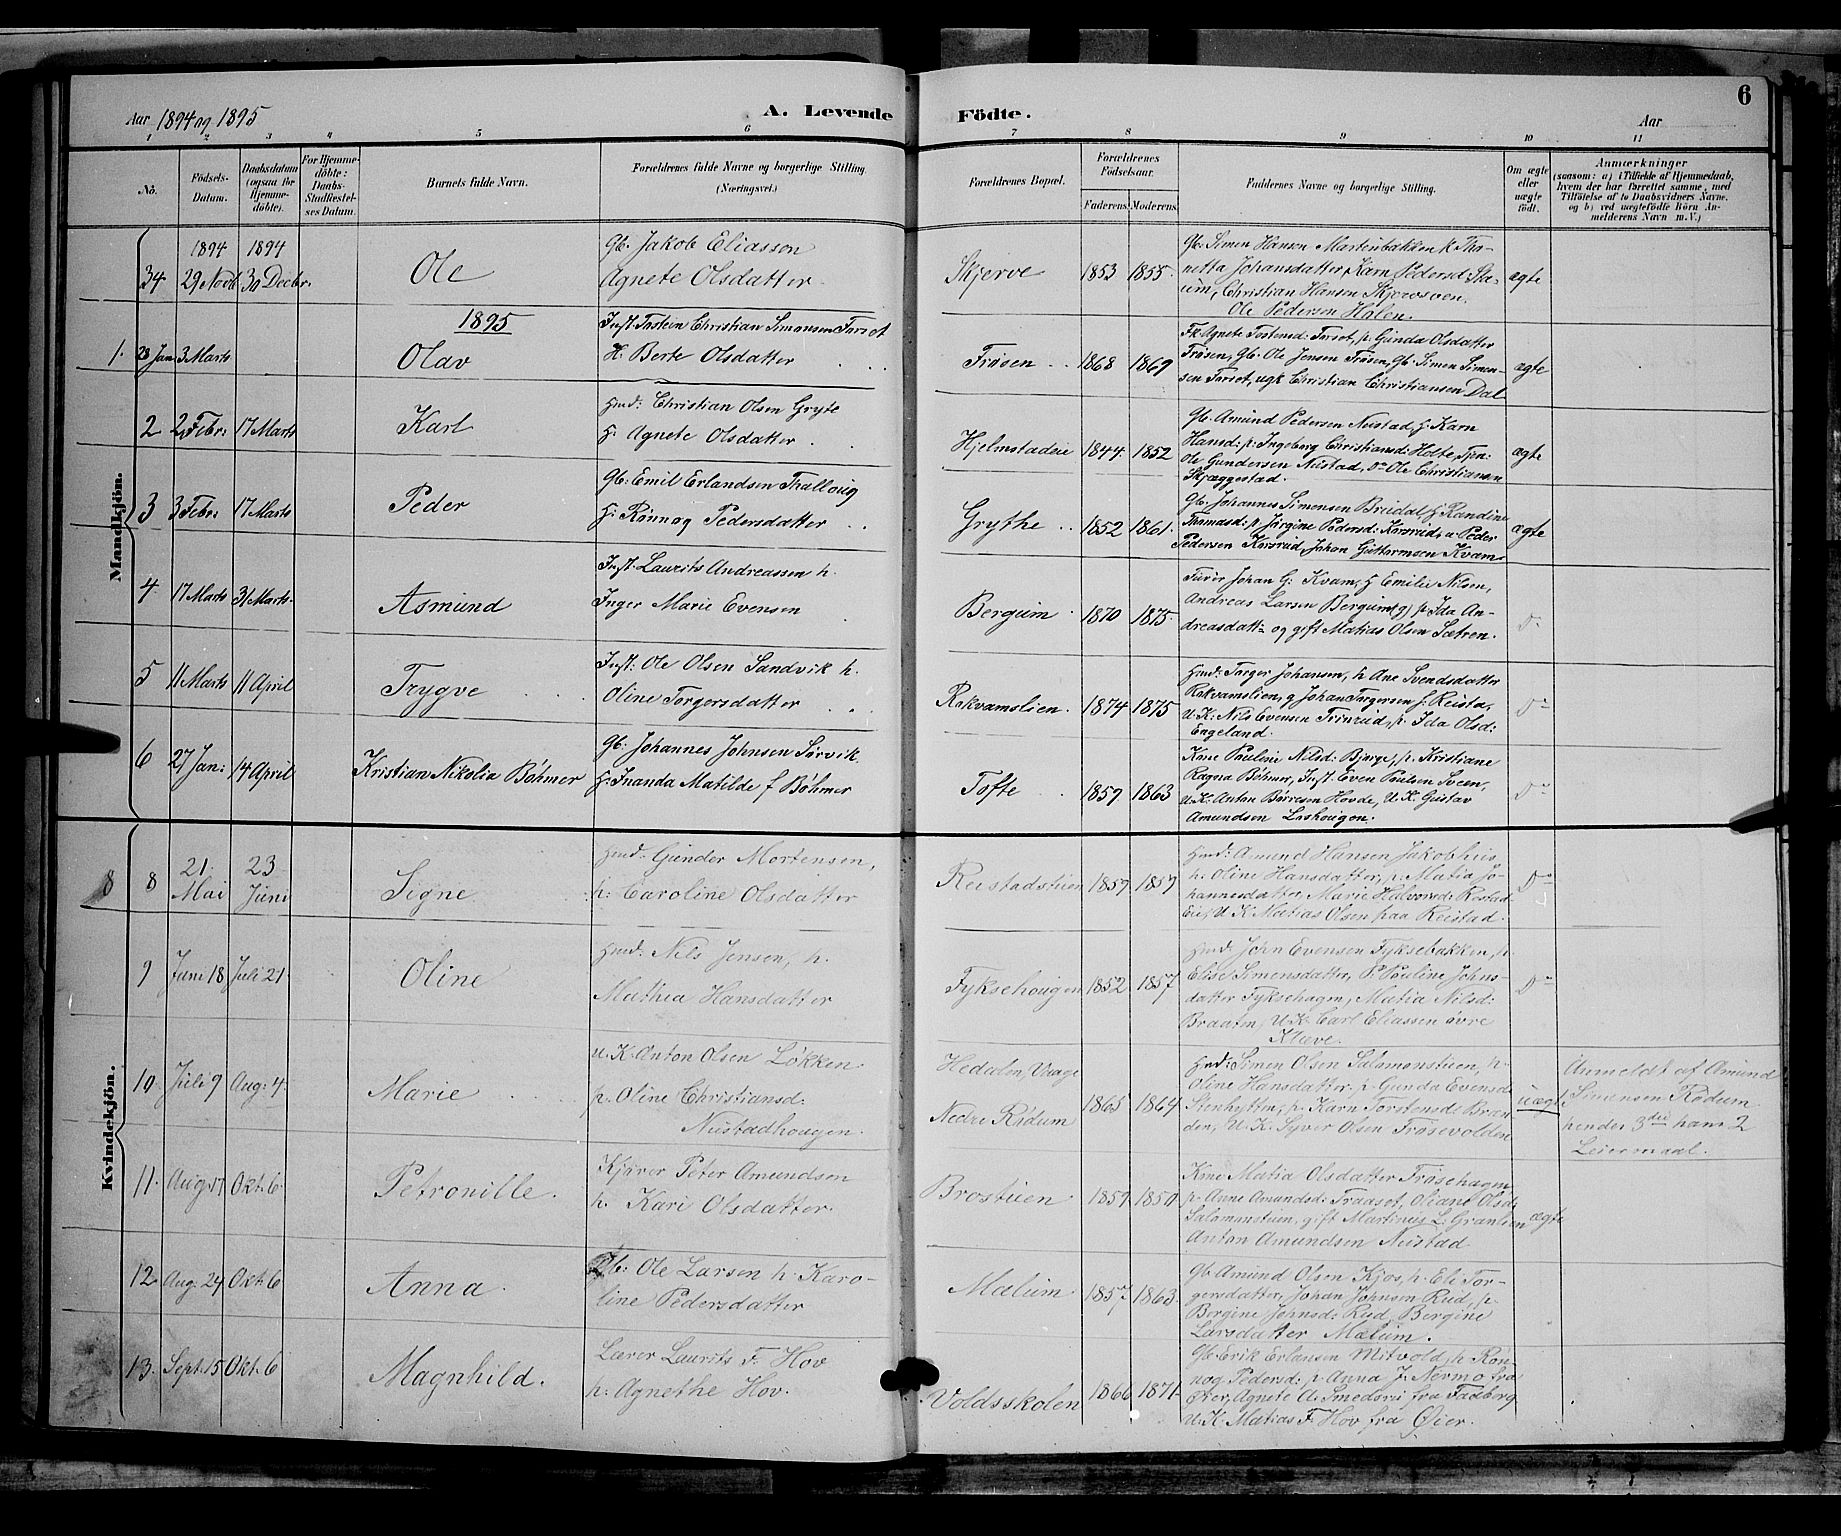 Aar 1894 og 1895
A. Levende Födte.
6
Aar
1 2 3 4 5 6 7 8 9 10 11
No.
Födsels-Datum.
Daabsdatum (ogsaa for Hjemme-döbte).
For Hjemme-döbte: Daabs-Stadfæstel-ses Datum.
Barnets fulde Navn.
Forældrenes fulde Navne og borgerlige Stilling. (Næringsvei.)
Forældrenes Bopæl.
Forældrenes Födselsaar.
Faderens. Moderens.
Faddernes Navne og borgerlige Stilling.
Om ægte eller uægte födt.
Anmærkninger
(saasom: a) i Tilfælde af Hjemmedaab, hvem der har forrettet samme, med Tilföielse af to Daabsvidners Navne, og b) ved uægtefödte Börn An-melderens Navn m. V.)
Mandkjön.
34 1894 29 Novb 1894 30 Decbr.
Ole
Gb. Jakob Eliassen
Agnete Olsdatter
Skjerve 1853 1855
Gb. Simen Hansen Martinbakken k Tho-
netta Johansdatter, Karn Pedersd Sta-
um, Christian Hansen Skjervsven.
Ole Pedersen Holen.
ægte
1895
1. 28 Jan 3 Marts
Olav
Inst. Tostein Christian Simonsen Forset
H. Berte Olsdatter
Frøsen 1868 1869
Fk. Agnete Tostensd: Forset, p. Gunda Olsdatter
Frøsen, Gb. Ole Jensen Frøsen, Gb. Simen Simen-
sen Forset, ugk Christian Christiansen Dal
ægte
2 2 Febr: 17 Marts
Karl
Hmd: Christian Olsen Gryte
H. Agnete Olsdatter
Hjelmstadeie 1844 1852
Gb. Amund Pedersen Nustad, H Karn
Hansd: p. Ingeberg Christiansd: Holte, Tjen:
Ole Gundersen Nustad, do Ole Christiansen
Skjæggestad.
ægte
3 3 Febr: 17 Marts
Peder
Gb: Emil Erlandsen Tralloug
H. Rønnog Pedersdatter
Grythe 1852 1861
Gb. Johannes Simensen Bredal, H Randine
Thomasd: p. Jørgine Pedersd: Korsrud, u Peder
Pedersen Korsrud, Johan Guttormsen Kvam
ægte
4 17 Marts 31 Marts
Asmund
Inst. Laurits Andreassen h.
Inger Marie Evensen
Bergum 1870 1875
Furér Johan G: Kvam, H Emilie Nilsen,
Andreas Larsen Bergum (g) p. Ida An-
dreasdatt: og gift Matias Olsen Sætren.
do
5 11 Marts 11 April
Trygve
Inst: Ole Olsen Sandvik h.
Oline Torgersdatter
Rokvamslien 1874 1875
Hmd: Torger Johansen, h Ane Svendsdatter
Rokvamslien, g Johan Torgersen f. Reista,
U.K: Nils Evensen Trinrud, p. Ida Olsd:
Engeland.
do
6 27 Jan: 14 April
Kristian Nikolia Bøhmer
Gb: Johannes Johnsen Sørvik
H: Inanda Matilde f Bøhmer
Tofte 1859 1863
Kone Pauline Nilsd: Bjerge, p. Kristiane
Ragna Bøhmer, Inst. Even Paulsen Sveen,
U.K: Anton Børresen Hovde, U.K. Gustav
Amundsen Loshougen.
do
Kvindekjön.
8 8 21. Mai 23 Juni
Signe
Hmd. Gunder Mortensen,
h: Caroline Olsdatter
Reistadstuen 1859 1859
Hmd: Amund Hansen Jakobhus,
h: Oline Hansdatter, p. Matia Jo-
hannesdatter Marie Halvorsd: Restad
Eie, U K Matias Olsen paa Reistad.
do
9 Juni 18 Juli 21
Oline
Hmd: Nils Jensen, h.
Mathea Hansdatter
Fyksehougen 1852 1857
Hmd: John Evensen Fyksebakken, h.
Elise Simensdatter, P. Pauline Johns-
datter Fyksehagen, Matia Nilsd:
Braaten, U.K. Carl Eliassen øvre
Kleve.
do
10 Juli 9 Aug: 4
Marie
U.K. Anton Olsen Løkken
p. Oline Christiansd:
Nustadhougen
Hedalen, Vaage
Nedre Rødum 1865 1864
Hmd: Simen Olsen Salomonstuen, h.
Oline Hansdatter, p. Gunda Evensd
Stenhytten, p. Karn Torstensds Bræn
den, U.K. Syver Olsen Frøsevolden
uægte
Anmeldt af Amund
Simensen Rødum
hendes 3die hans 2
Leiermaal.
11. Aug 17 Okt. 6
Petronille.
Kjører Peter Amundsen
h. Kari Olsdatter
Brostuen 1859 1850
Kone Matia Olsdatter Frøsehagen
p. Anne Amundsd: Fraaset, Oliane Olsd:
Salomonstuen, gift Martinus L: Granlien
Anton Amundsen Nustad
ægte
12 Aug: 24 Okt. 6
Anna
Gb: Ole Larsen h. Karo-
line Pedersdatter
Mælum 1857 1863
Gb. Amund Olsen Kjos, h. Eli Tor-
gersdatter, Johan Johnsen Rud, p.
Bergine Johnsd: Rud, Bergine
Larsdatter Mælum.
13. Sept. 15 Okt. 6
Magnhild.
Lærer Laurits F. Hov
h: Agnethe Hov.
Voldsskolen 1866 1871
Gb. Erik Erlansen Mitvold, h Ron-
nog Pedersd: p. Anna J. Nermo fra
Øier, Agnete A: Smedsrsi fra Faaberg
U. K. Matias F. Hov fra Øier.